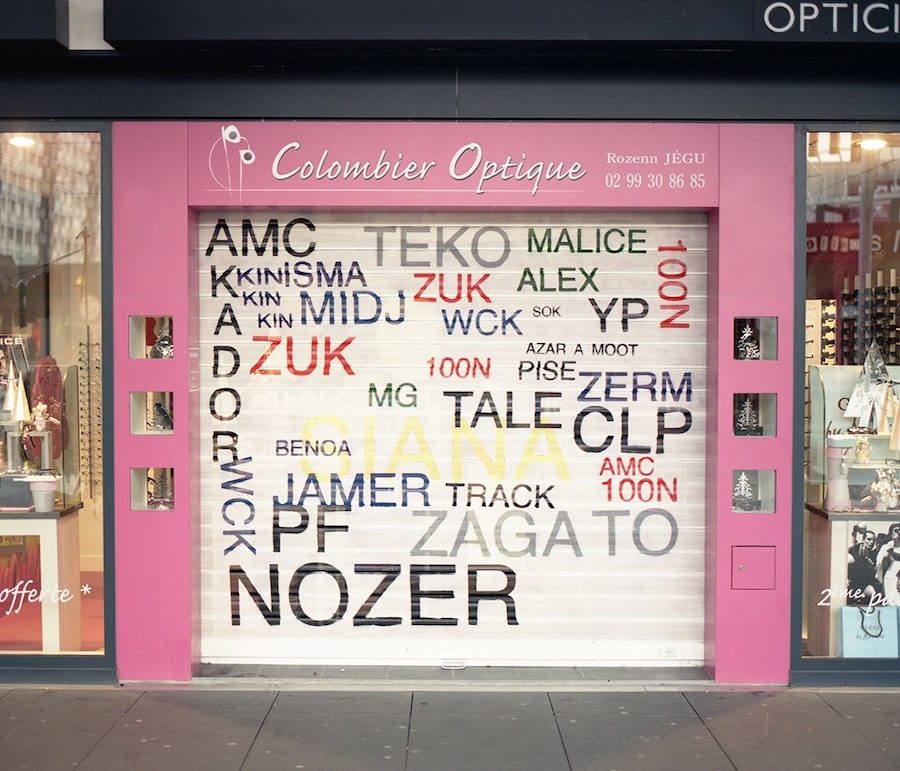 OPTICI
Colombier Optique
Rozenn JÉGU
02 99 30 86 85
AMC
TEKO
MALICE
100N
KADOR
KINISMA
ZUK
ALEX
KIN
MIDJ
SOK
YP
KIN
WCK
ZUK
AZAR A MOOT
100N
PISE
ZERM
MG
TALE
CLP
SIANA
BENOA
AMC
WCK
JAMER
TRACK
100N
PF
ZAGATO
NOZER
offerte *
2ème